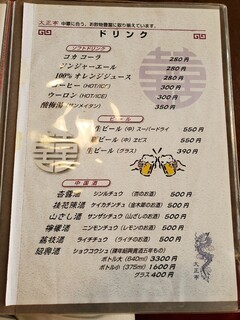 大正亭 中華に合う、お飲物豊富に取り揃えています。
ドリンク
ソフトドリンク
コカ コーラ 280円
ジンジャーエール 280円
100% オレンジジュース 280円
コーヒー (HOT/ICE) 300円
ウーロン (HOT/ICE) 300円
酸梅湯 (サンメイタン) 350円
ビール
生ビール (中) スーパードライ 550円
ビール (中) ヱビス 550円
生ビール (グラス) 390円
中国酒
杏露酒 シンルチュウ (杏のお酒) 500円
桂花陳酒 ケイカチンチュウ (金木犀のお酒) 500円
山さし酒 サンザシチュウ (山ざしのお酒) 500円
檸檬酒 ニンモンチュウ (レモンのお酒) 500円
茘枝酒 ライチチュウ (ライチのお酒) 500円
紹興酒 ショウコウシュ (陳年紹興貴酒五年もの)
ボトル大 (640ml) 3300円
ボトル小 (375ml) 1600円
グラス 400円